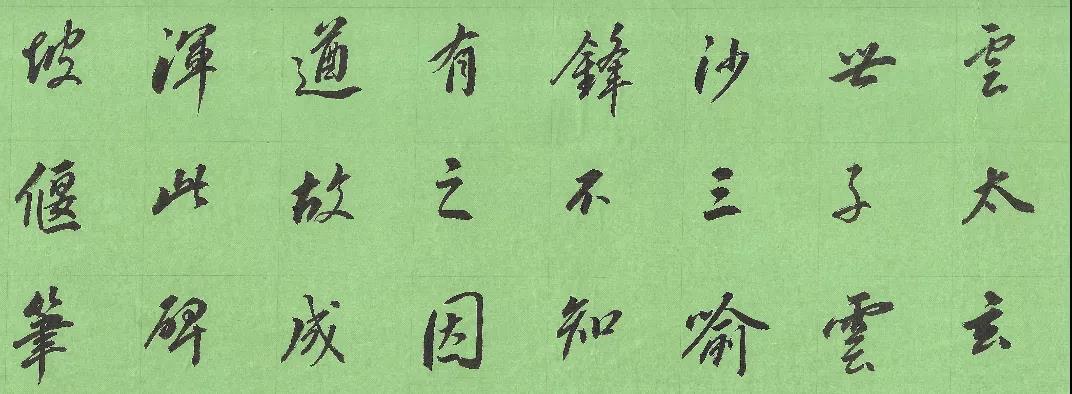 雲太玄
世子雲
沙三喻
鋒不知
有之因
遒故成
渾此碑
坡偃筆